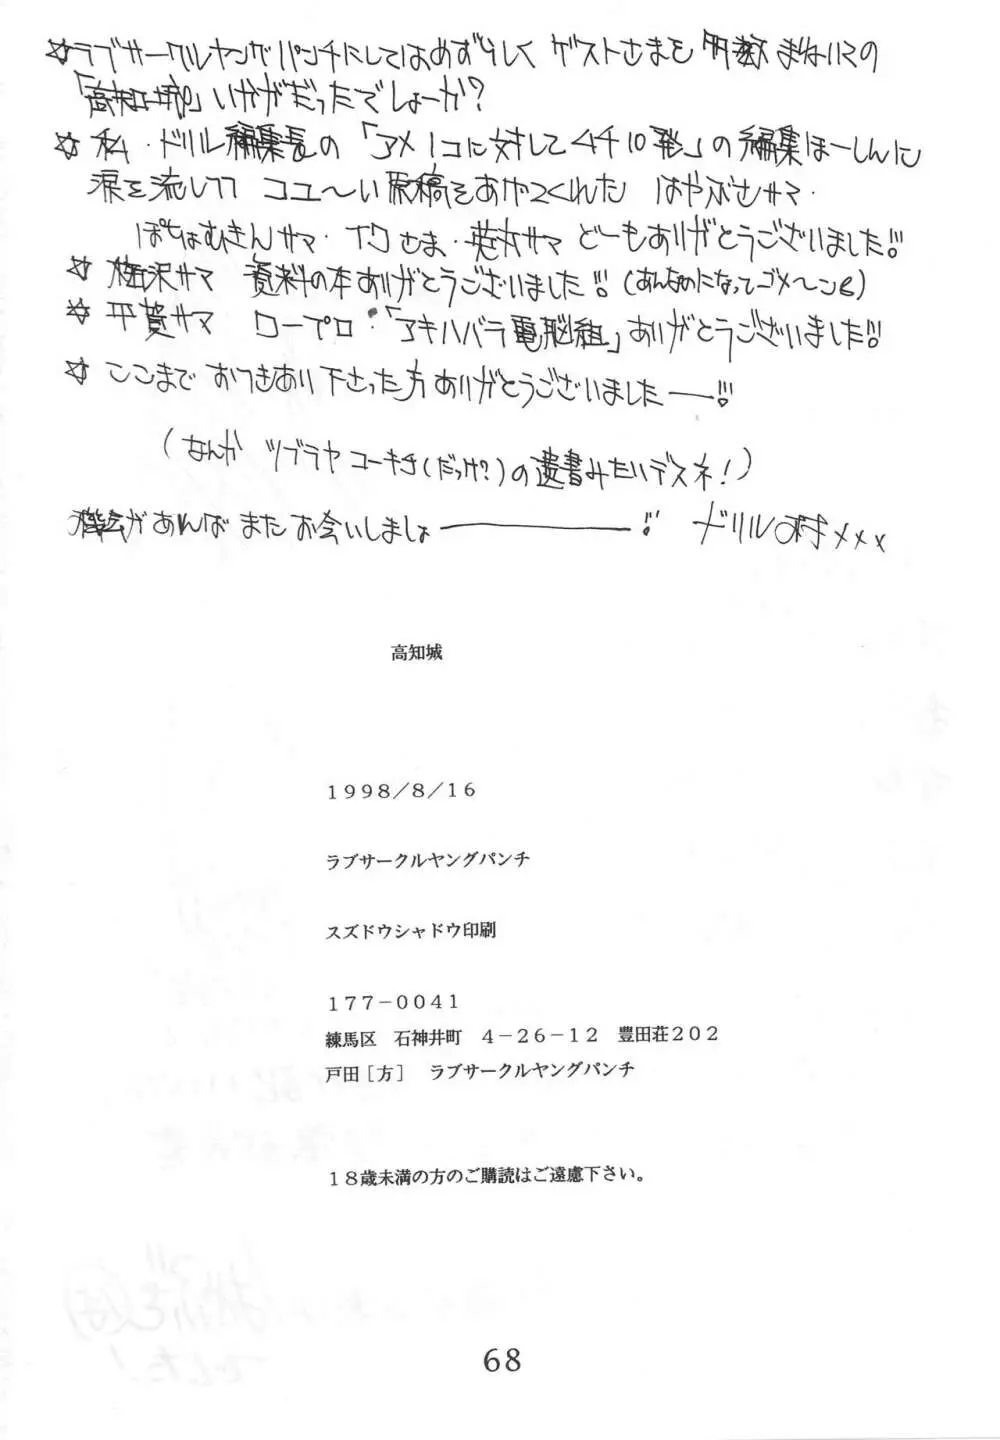 ☆ラブサークルヤングパンチにしてはめずらしく ゲストさまを 多数 まねいての
「高知城」いかがだったでしょーか?
☆ 私・ドリル編集長の「アメ1コに対してムチ10発」の編集ほーしんに
涙を流しつつ コユ〜い原稿をあげてくれた はやぶさサマ・
ぽちはむきんサマ・イワさま・サマ どーもありがとうございました!!
☆ 梅沢サマ 資料の本ありがとうございました!!(あんなのになってゴメ〜ン)
☆ 平賀サマ ロープロ・「アキハバラ電脳組」ありがとうございました!!
☆ ここまで おつきあい下さった方ありがとうございました――!!
(なんか ツブラヤ コーキチ(だっけ?)の遺書みたいデスネ!)
機会があれば またお会いしましょ――――!! ドリル村xxx
高知城
1998/8/16
ラブサークルヤングパンチ
スズドウシャドウ印刷
177-0041
練馬区 石神井町 4-26-12 豊田荘202
戸田[方] ラブサークルヤングパンチ
18歳未満の方のご購読はご遠慮下さい。
68